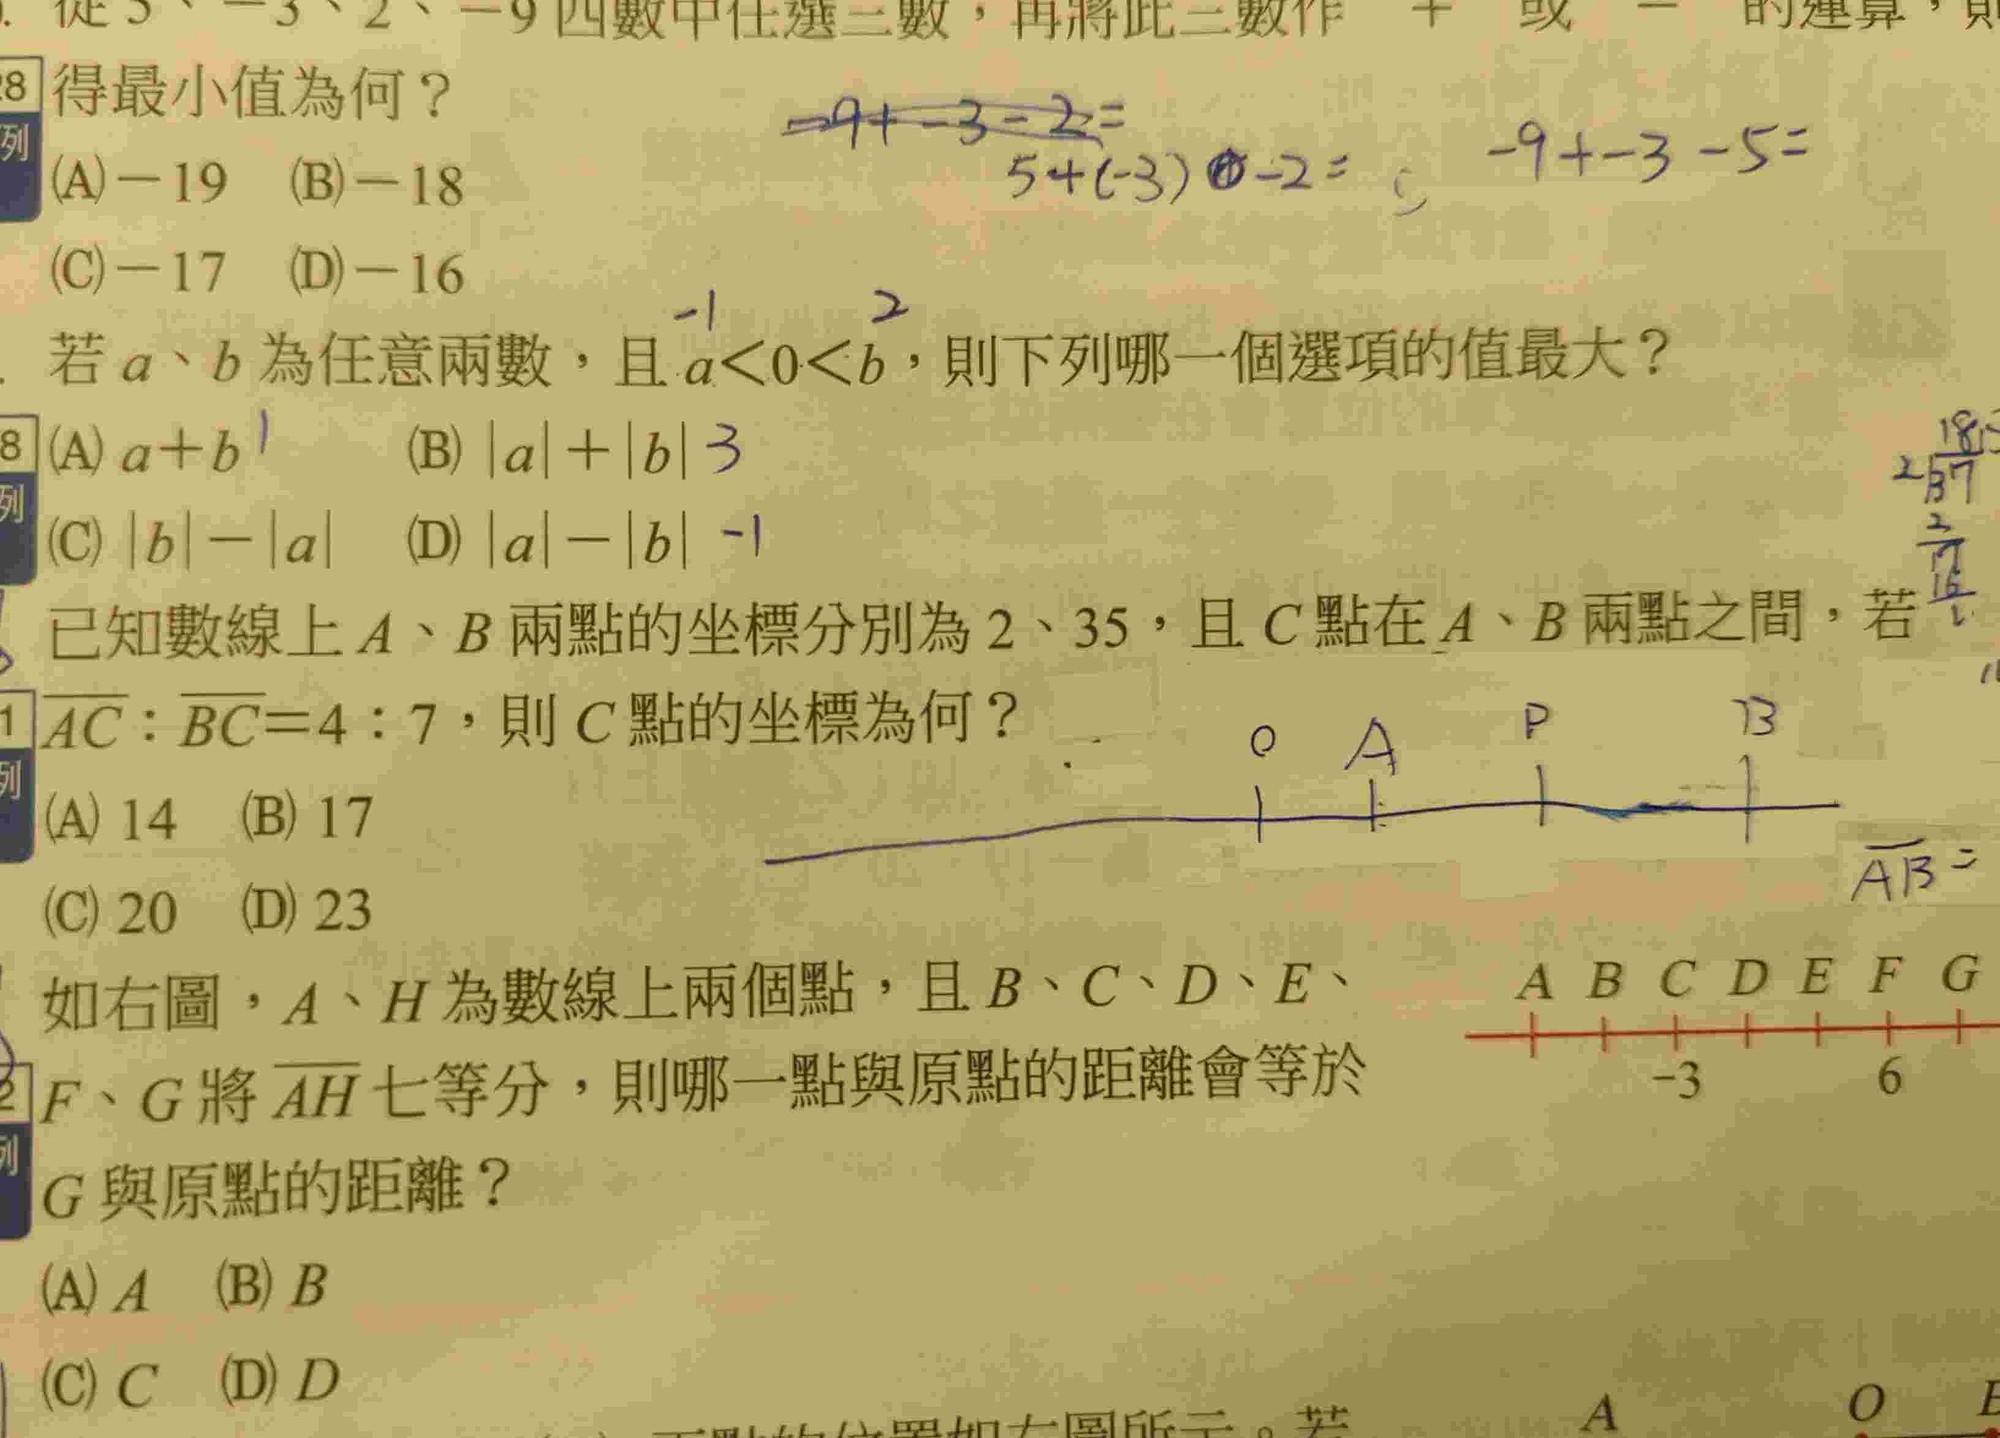 從 5、－3、2、－9 四數中任選三數，再將此三數作「＋」或「－」的運算，則
得最小值為何？
-9+-3-2=
5+(-3) -2=
-9+-3-5=
(A)－19 (B)－18
(C)－17 (D)－16
-1 2
若 a、b 為任意兩數，且 a＜0＜b，則下列哪一個選項的值最大？
8 (A) a＋b 1 (B) |a|＋|b| 3
列 (C) |b|－|a| (D) |a|－|b| -1
2 37
2
17
16
1
已知數線上 A、B 兩點的坐標分別為 2、35，且 C 點在 A、B 兩點之間，若
1 AC：BC＝4：7，則 C 點的坐標為何？
列
O A P B
(A) 14 (B) 17
AB =
(C) 20 (D) 23
如右圖，A、H 為數線上兩個點，且 B、C、D、E、
A B C D E F G
2 F、G 將 AH 七等分，則哪一點與原點的距離會等於
-3 6
列 G 與原點的距離？
(A) A (B) B
(C) C (D) D
A O